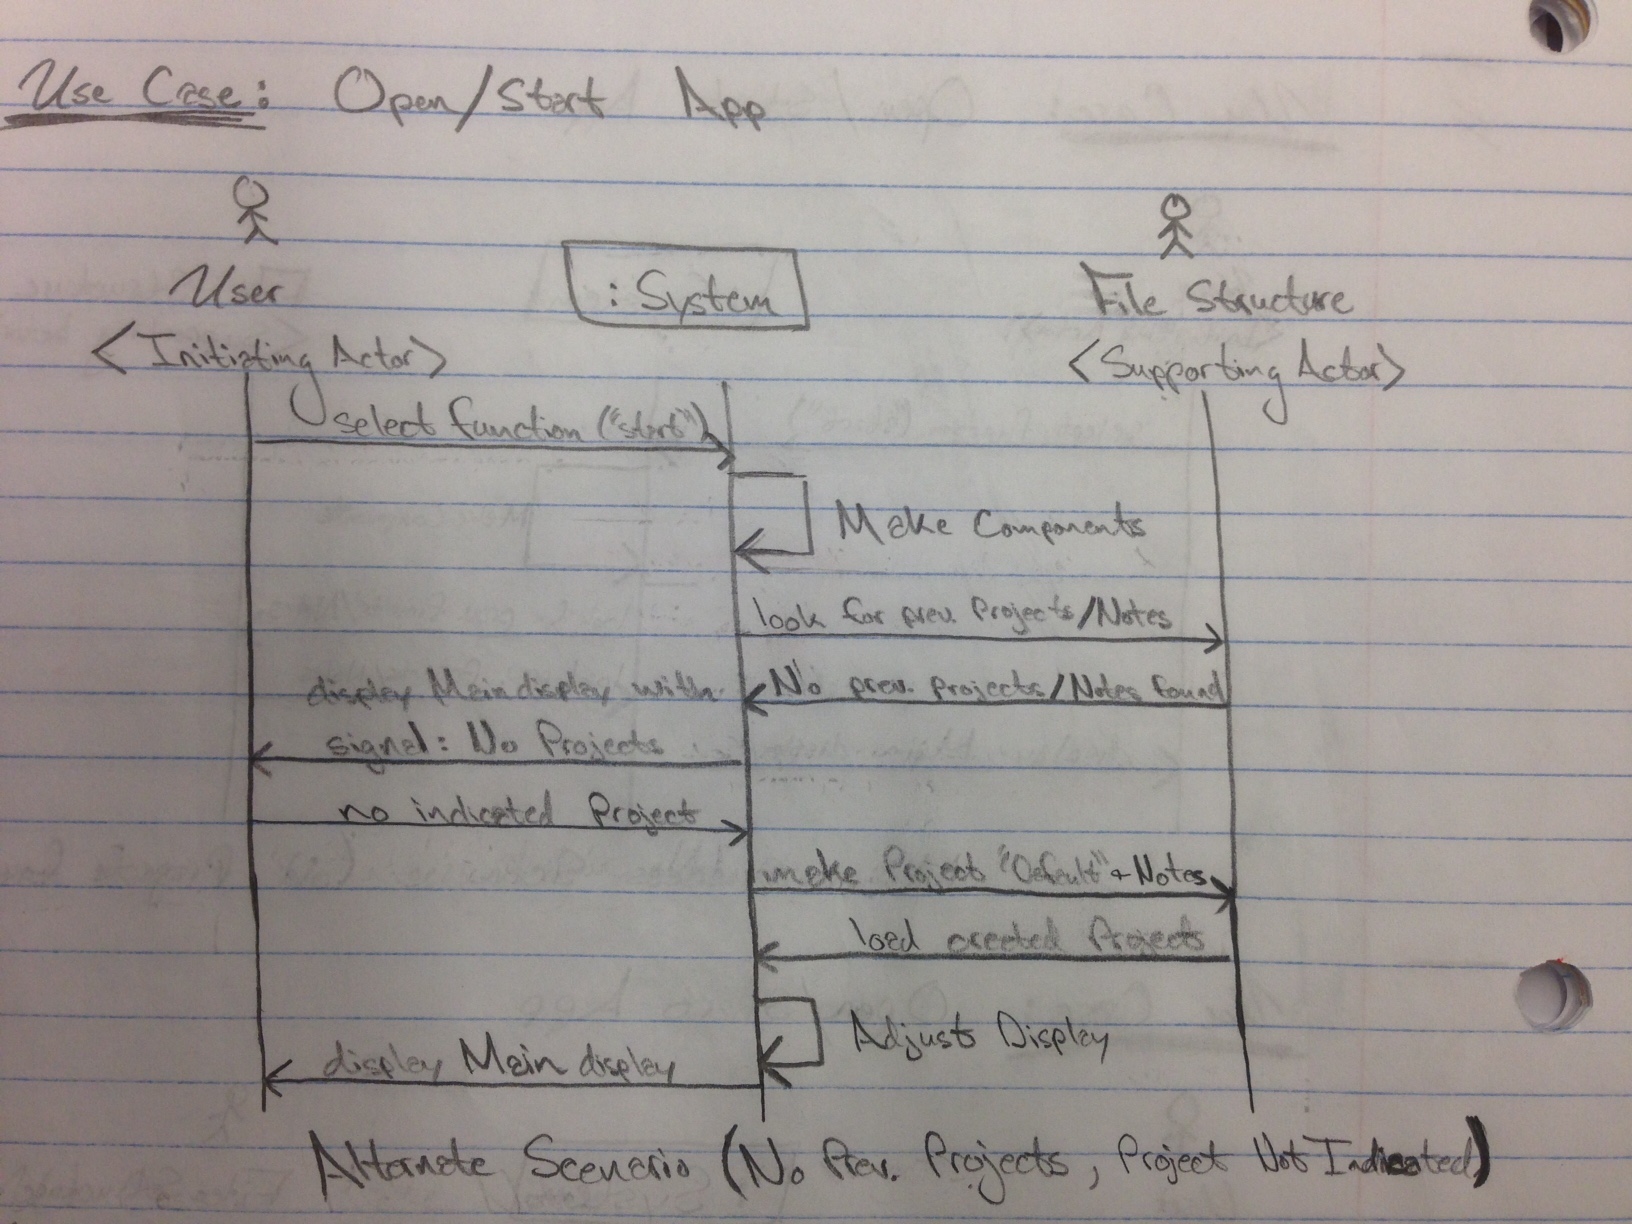 Use Case: Open/Start App
User
: System
File Structure
<Initiating Actor>
<Supporting Actor>
select function ("start")
Make Components
look for prev. Projects/Notes
No prev. projects/Notes found
display Main display with
signal: No Projects
no indicated Project
make Project "Default" + Notes
load created Projects
Adjusts Display
display Main display
Alternate Scenario (No Prev. Projects, Project Not Indicated)